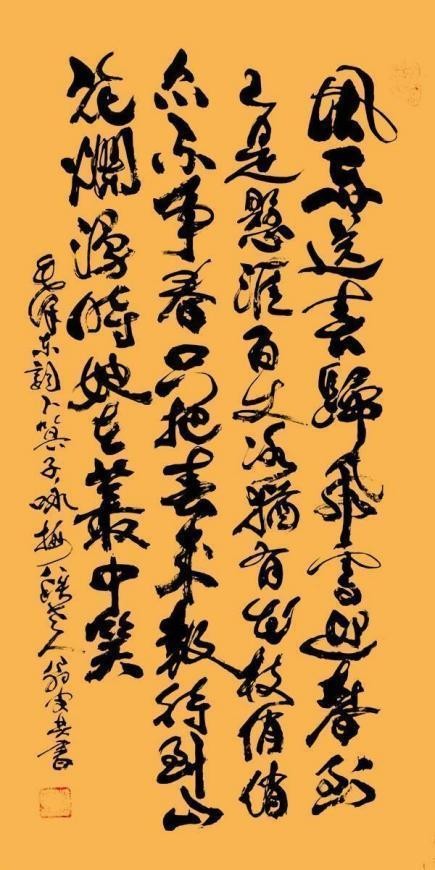 風雨送春歸飛雪迎春到
已是懸崖百丈冰猶有花枝俏俏
亦不争春只把春來報待到山
花爛漫時她在叢中笑
毛澤東詞卜算子咏梅八老人翁書